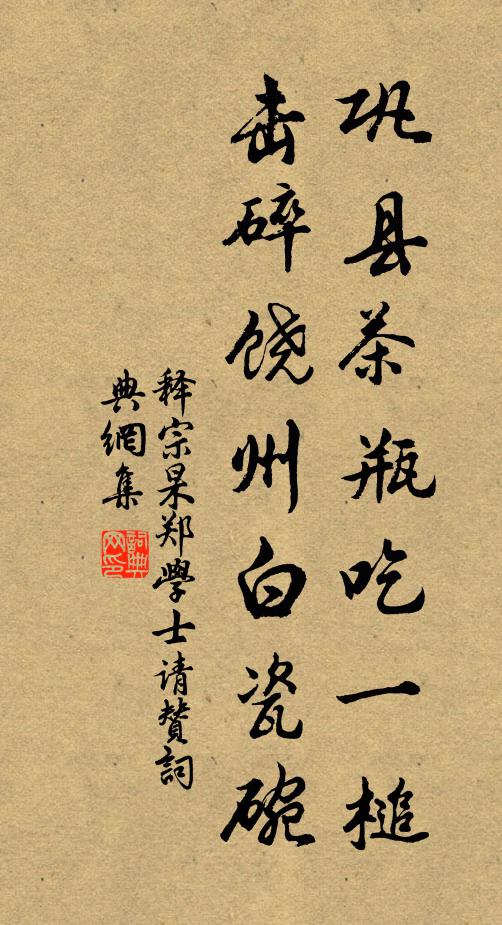 巩县茶瓶吃一槌
击碎饶州白瓷碗
释宗杲郑學士请赞詞
典網集
詞典网印